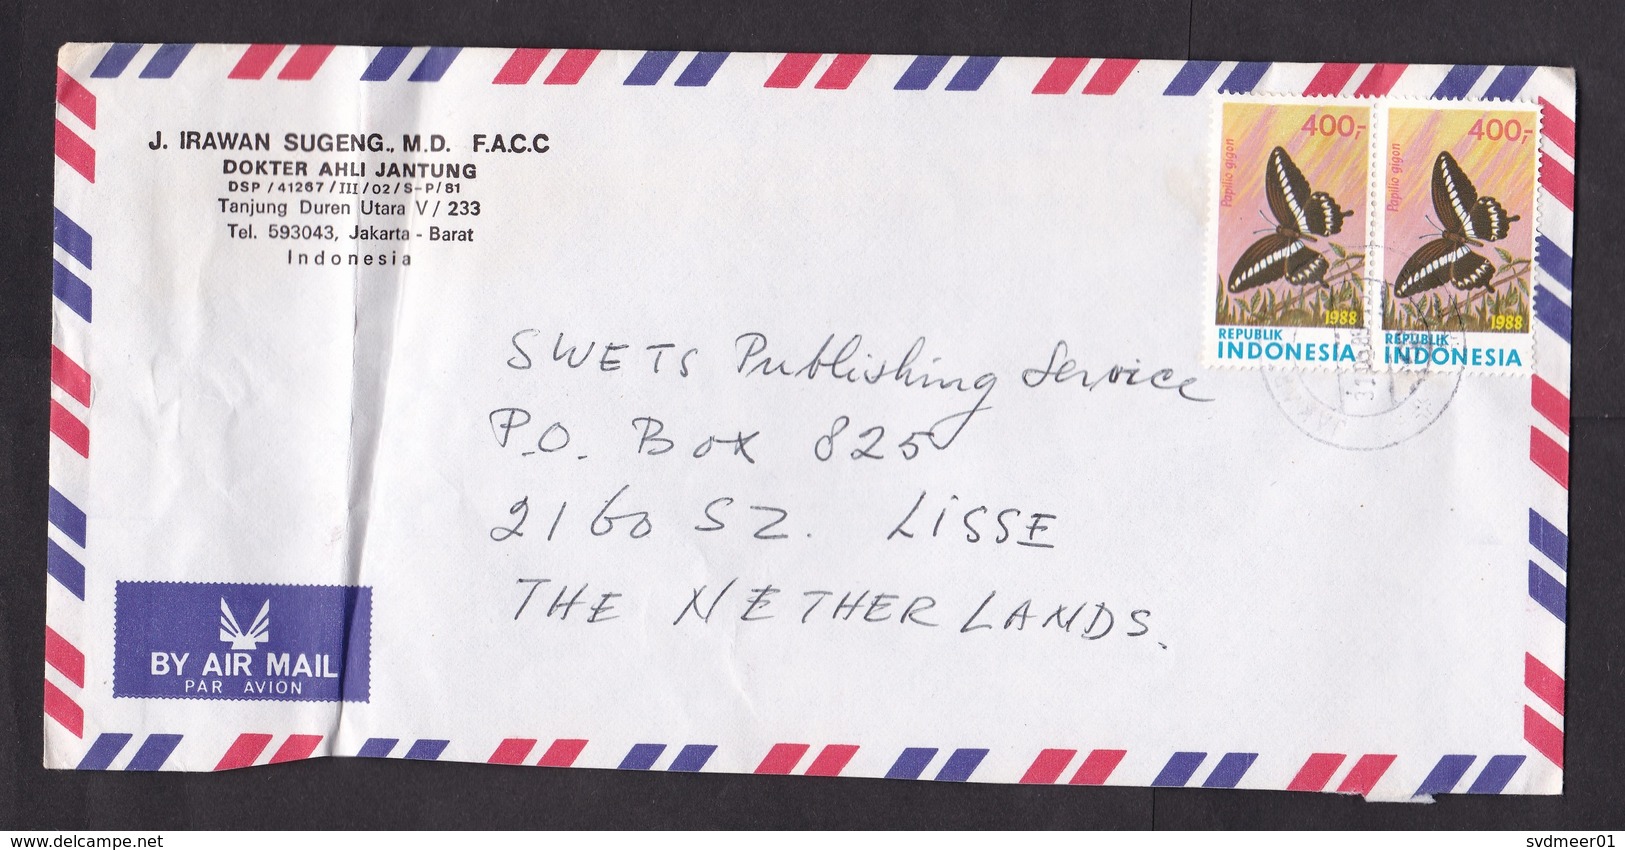 J. IRAWAN SUGENG., M.D. F.A.C.C
DOKTER AHLI JANTUNG
DSP / 41267 / III / 02 / S-P / 81
Tanjung Duren Utara V / 233
Tel. 593043, Jakarta - Barat
Indonesia
400,-
Papilio gigon
1988
REPUBLIK
INDONESIA
400,-
Papilio gigon
1988
REPUBLIK
INDONESIA
SWETS Publishing Service
P.O. Box 825
2160 SZ. LISSE
THE NETHERLANDS.
BY AIR MAIL
PAR AVION
delcampe.net
svdmeer01